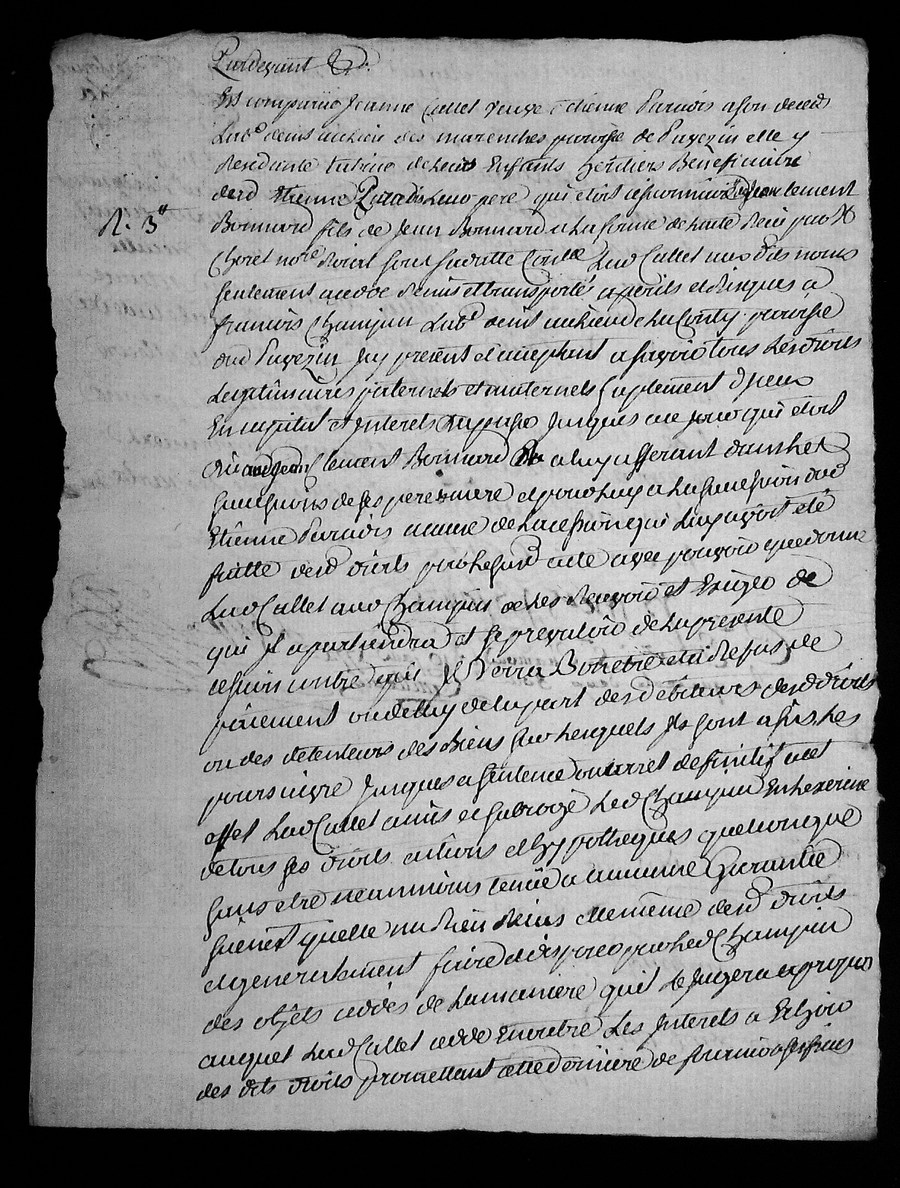 Pardevant &c.
Est comparüe Jeanne Callet veuve Etienne Paradis a son deceds
Lab.r au lieu des marenches paroisse de Pavezin elle y
Residante tutrice de leurs Enfants heritiers Beneficiaire
dud Etienne Paradis leur pere qui etoit cessionnaire de Jean Clement
R. 3#
Bonnard fils de Jean Bonnard a la forme de Lacte Recu par M
Choret no.re Roial sous sa datte Con.lle Lad Callet aux dits noms
seulement a cedé Remis et transportés a perils et Risques a
francois Champin Lab.r au lieu de La Conty paroisse
dud Pavezin Icy present et acceptant a savoir tous les droits
Legitimaires paternels et maternels suplement d'yceux
En capital et Interets du passé Jusques a ce jour qui etoit
dü aud Jean Clement Bonnard a luy afferant dans les
successions de ses pere mere et pour luy a la succession dud
Etienne Paradis a cause de la cession qui luy avoit eté
faitte desd droits par led acte avec pouvoir que donne
Lad Callet aud Champin de les Recevoir et Exiger de
qui Il apartiendra et se prevaloir de la presente
cession contre qui Il verra Bon etre et a Refus de
païement ou delay de la part des debiteurs desd droits
ou des detenteurs des Biens sur lesquels Ils sont assis, les
poursuivre Jusques a sentence ou arret definitif a cet
effet Lad Callet a mis et subrogé Led Champin En Lexercice
de tous ses droits actions et hypotheques quelconque
sans etre neanmoins tenüe a aucunne Garantie
sinent quelle na Rien Recus Elle meme desd droits
et generalement faire et disposer par led Champin
des objets cedés de la maniere quil le Jugera a propos
auquel Lad Callet cedde En outre Les Interets a Echoir
des dits droits promettant cette derniere de fournir a ses frais